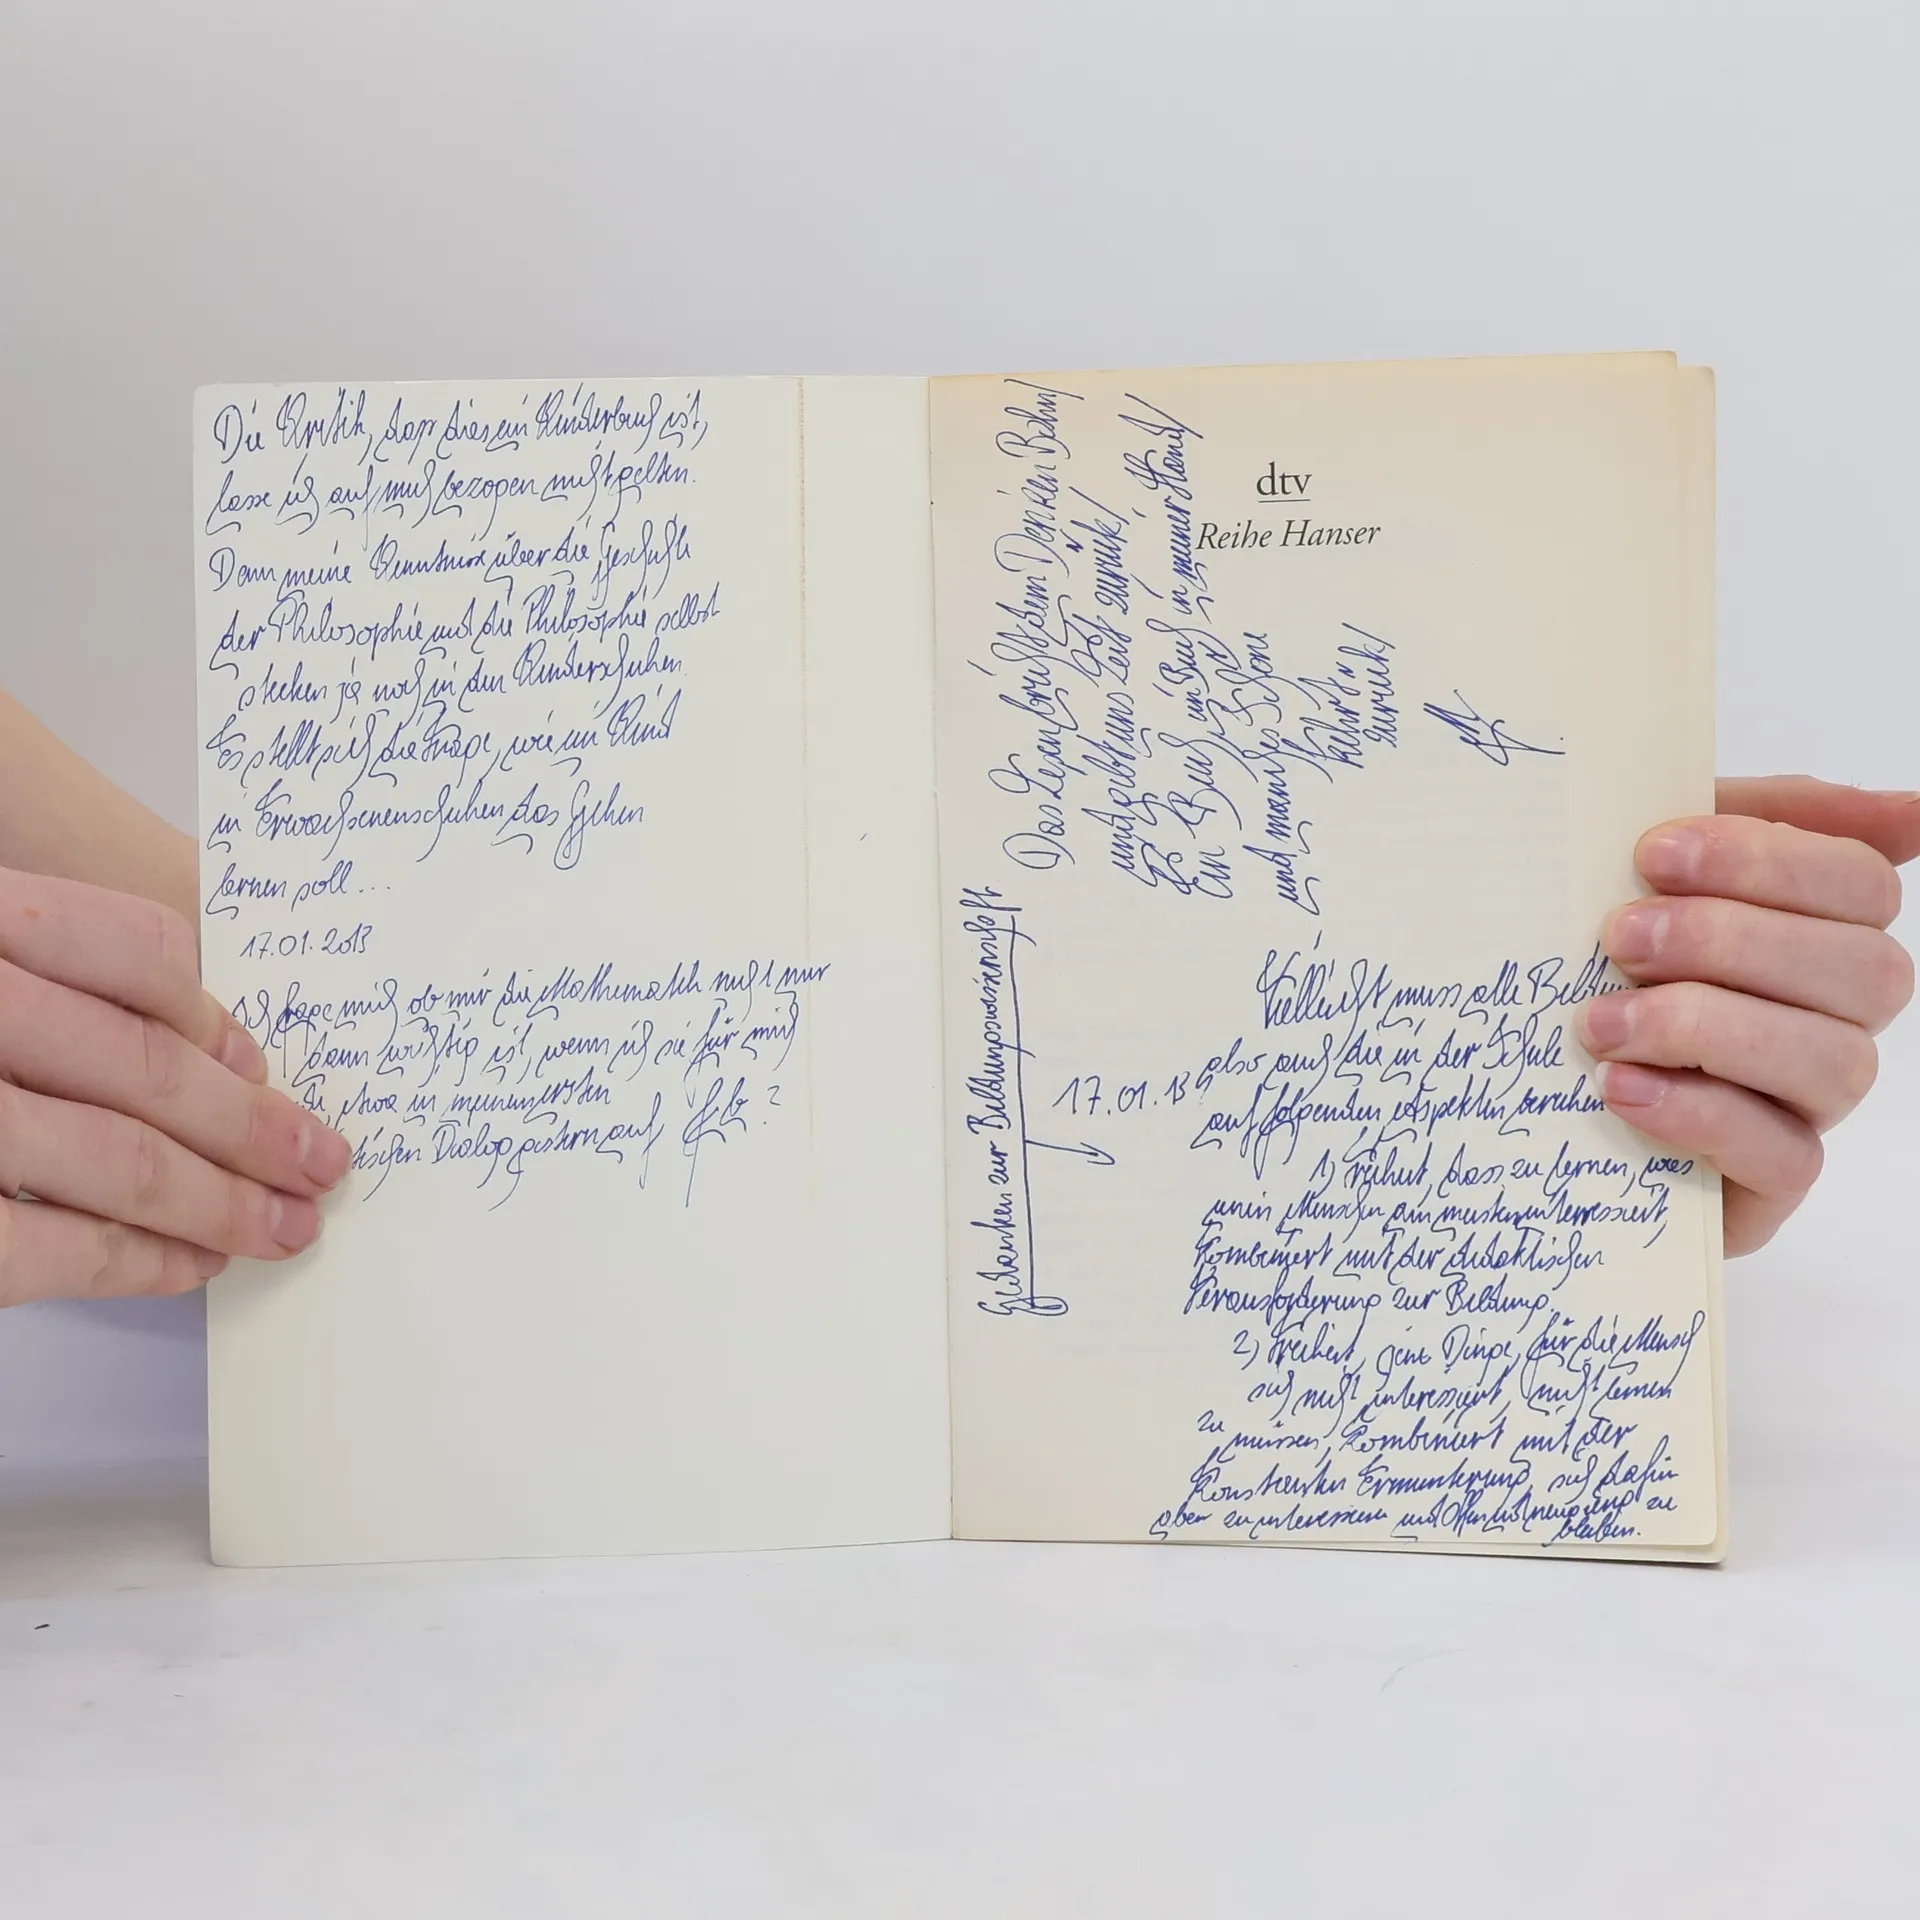 Die Kritik, dass dies ein Kinderbuch ist,
lasse ich auf mich bezogen nicht gelten.
Denn meine Kenntnisse über die Geschichte
der Philosophie und die Philosophie selbst
stecken ja noch in den Kinderschuhen.
Es stellt sich die Frage, wie ein Kind
in Erwachsenenschuhen das Gehen
lernen soll...
17.01.2013
Ich frage mich ob mir die Mathematik nicht nur
dann wichtig ist, wenn ich sie für mich
etwa in meinem ersten
Dialog gestern auf
dtv
Reihe Hanser
Das Lesen bricht dem Denken Bahn/
und gibt uns Zeit zurück/
Ein Buch, ein Buch in meiner Hand/
und manches Schöne
kehrt
zurück/
Gedanken zur Bildungswissenschaft
17.01.13
Vielleicht muss alle Bildung
also auch die in der Schule
auf folgenden Aspekten beruhen
1) Freiheit, dass zu lernen, was
einen Menschen am meisten interessiert,
kombiniert mit der didaktischen
Herausforderung zur Bildung.
2) Freiheit, jene Dinge, für die Mensch
sich nicht interessiert, nicht lernen
zu müssen, kombiniert mit der
konstanten Ermunterung, sich dafür
aber zu interessieren und offen und neugierig zu
bleiben.